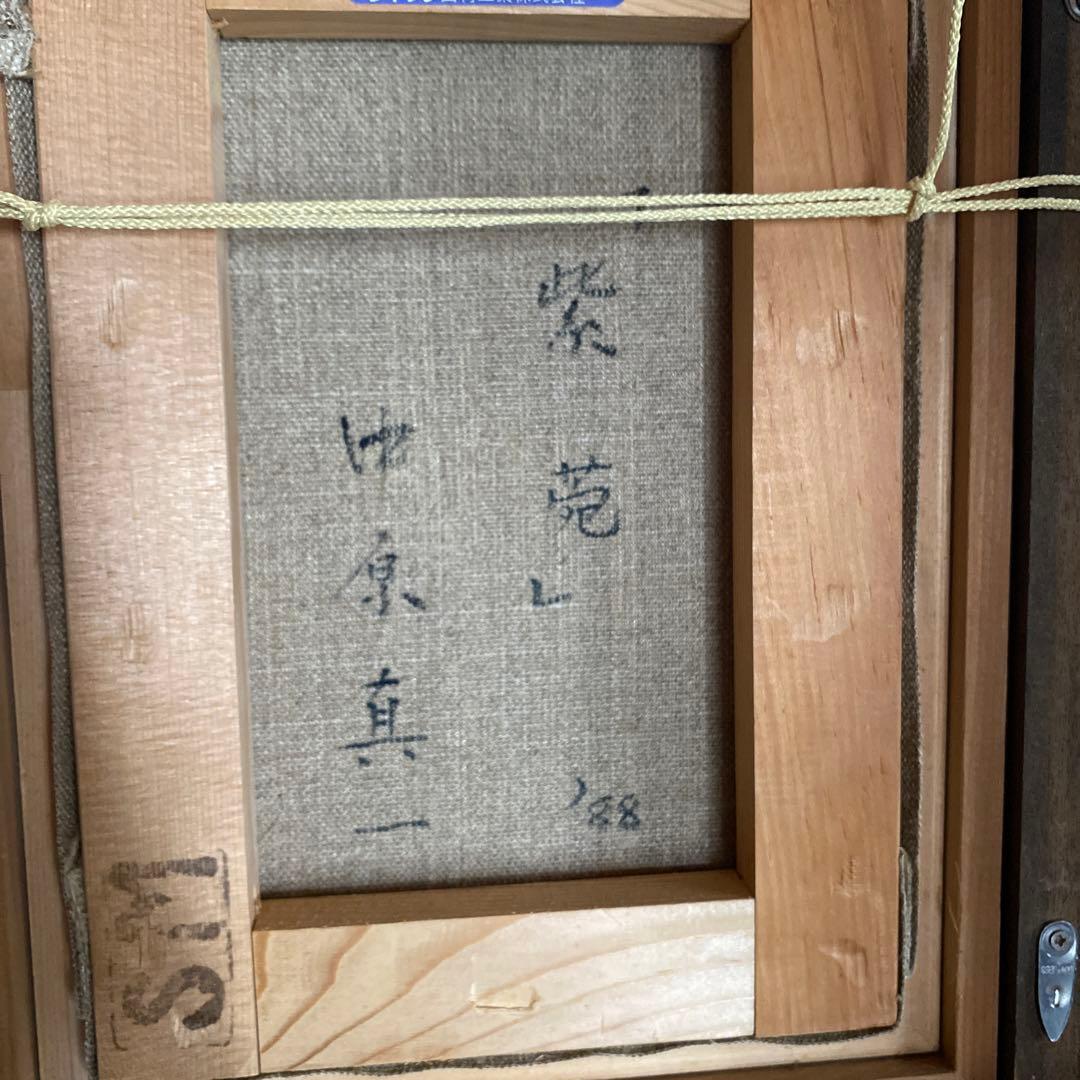 「紫菀」
'88
中原真一
SM